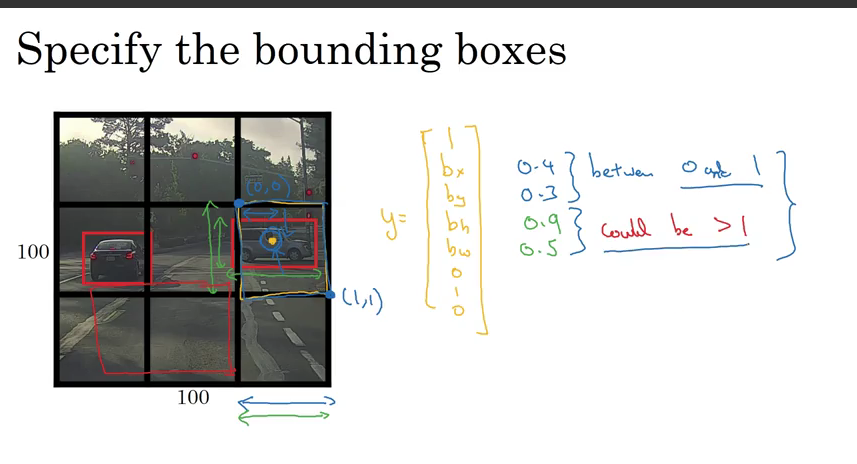 Specify the bounding boxes
(0,0)
100
(1,1)
100
y=
1
bx
by
bh
bw
0
1
0
0.4
0.3
between 0 and 1
0.9
0.5
could be >1